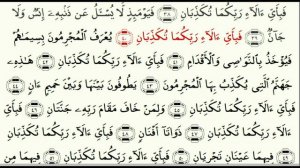 فَبِأَيِّ ءَالَآءِ رَبِّكُمَا تُكَذِّبَانِ ٣٨ فَيَوْمَئِذٍ لَّا يُسْـَٔلُ عَن ذَنۢبِهِۦٓ إِنسٌ وَلَا
جَآنٌّ ٣٩ فَبِأَيِّ ءَالَآءِ رَبِّكُمَا تُكَذِّبَانِ ٤٠ يُعْرَفُ ٱلْمُجْرِمُونَ بِسِيمَٰهُمْ
فَيُؤْخَذُ بِٱلنَّوَٰصِى وَٱلْأَقْدَامِ ٤١ فَبِأَيِّ ءَالَآءِ رَبِّكُمَا تُكَذِّبَانِ ٤٢ هَٰذِهِۦ
جَهَنَّمُ ٱلَّتِى يُكَذِّبُ بِهَا ٱلْمُجْرِمُونَ ٤٣ يَطُوفُونَ بَيْنَهَا وَبَيْنَ حَمِيمٍ ءَانٍ ٤٤
فَبِأَيِّ ءَالَآءِ رَبِّكُمَا تُكَذِّبَانِ ٤٥ وَلِمَنْ خَافَ مَقَامَ رَبِّهِۦ جَنَّتَانِ ٤٦
فَبِأَيِّ ءَالَآءِ رَبِّكُمَا تُكَذِّبَانِ ٤٧ ذَوَاتَآ أَفْنَانٍ ٤٨ فَبِأَيِّ ءَالَآءِ رَبِّكُمَا تُكَذِّبَانِ ٤٩
فِيهِمَا عَيْنَانِ تَجْرِيَانِ ٥٠ فَبِأَيِّ ءَالَآءِ رَبِّكُمَا تُكَذِّبَانِ ٥١ فِيهِمَا مِن